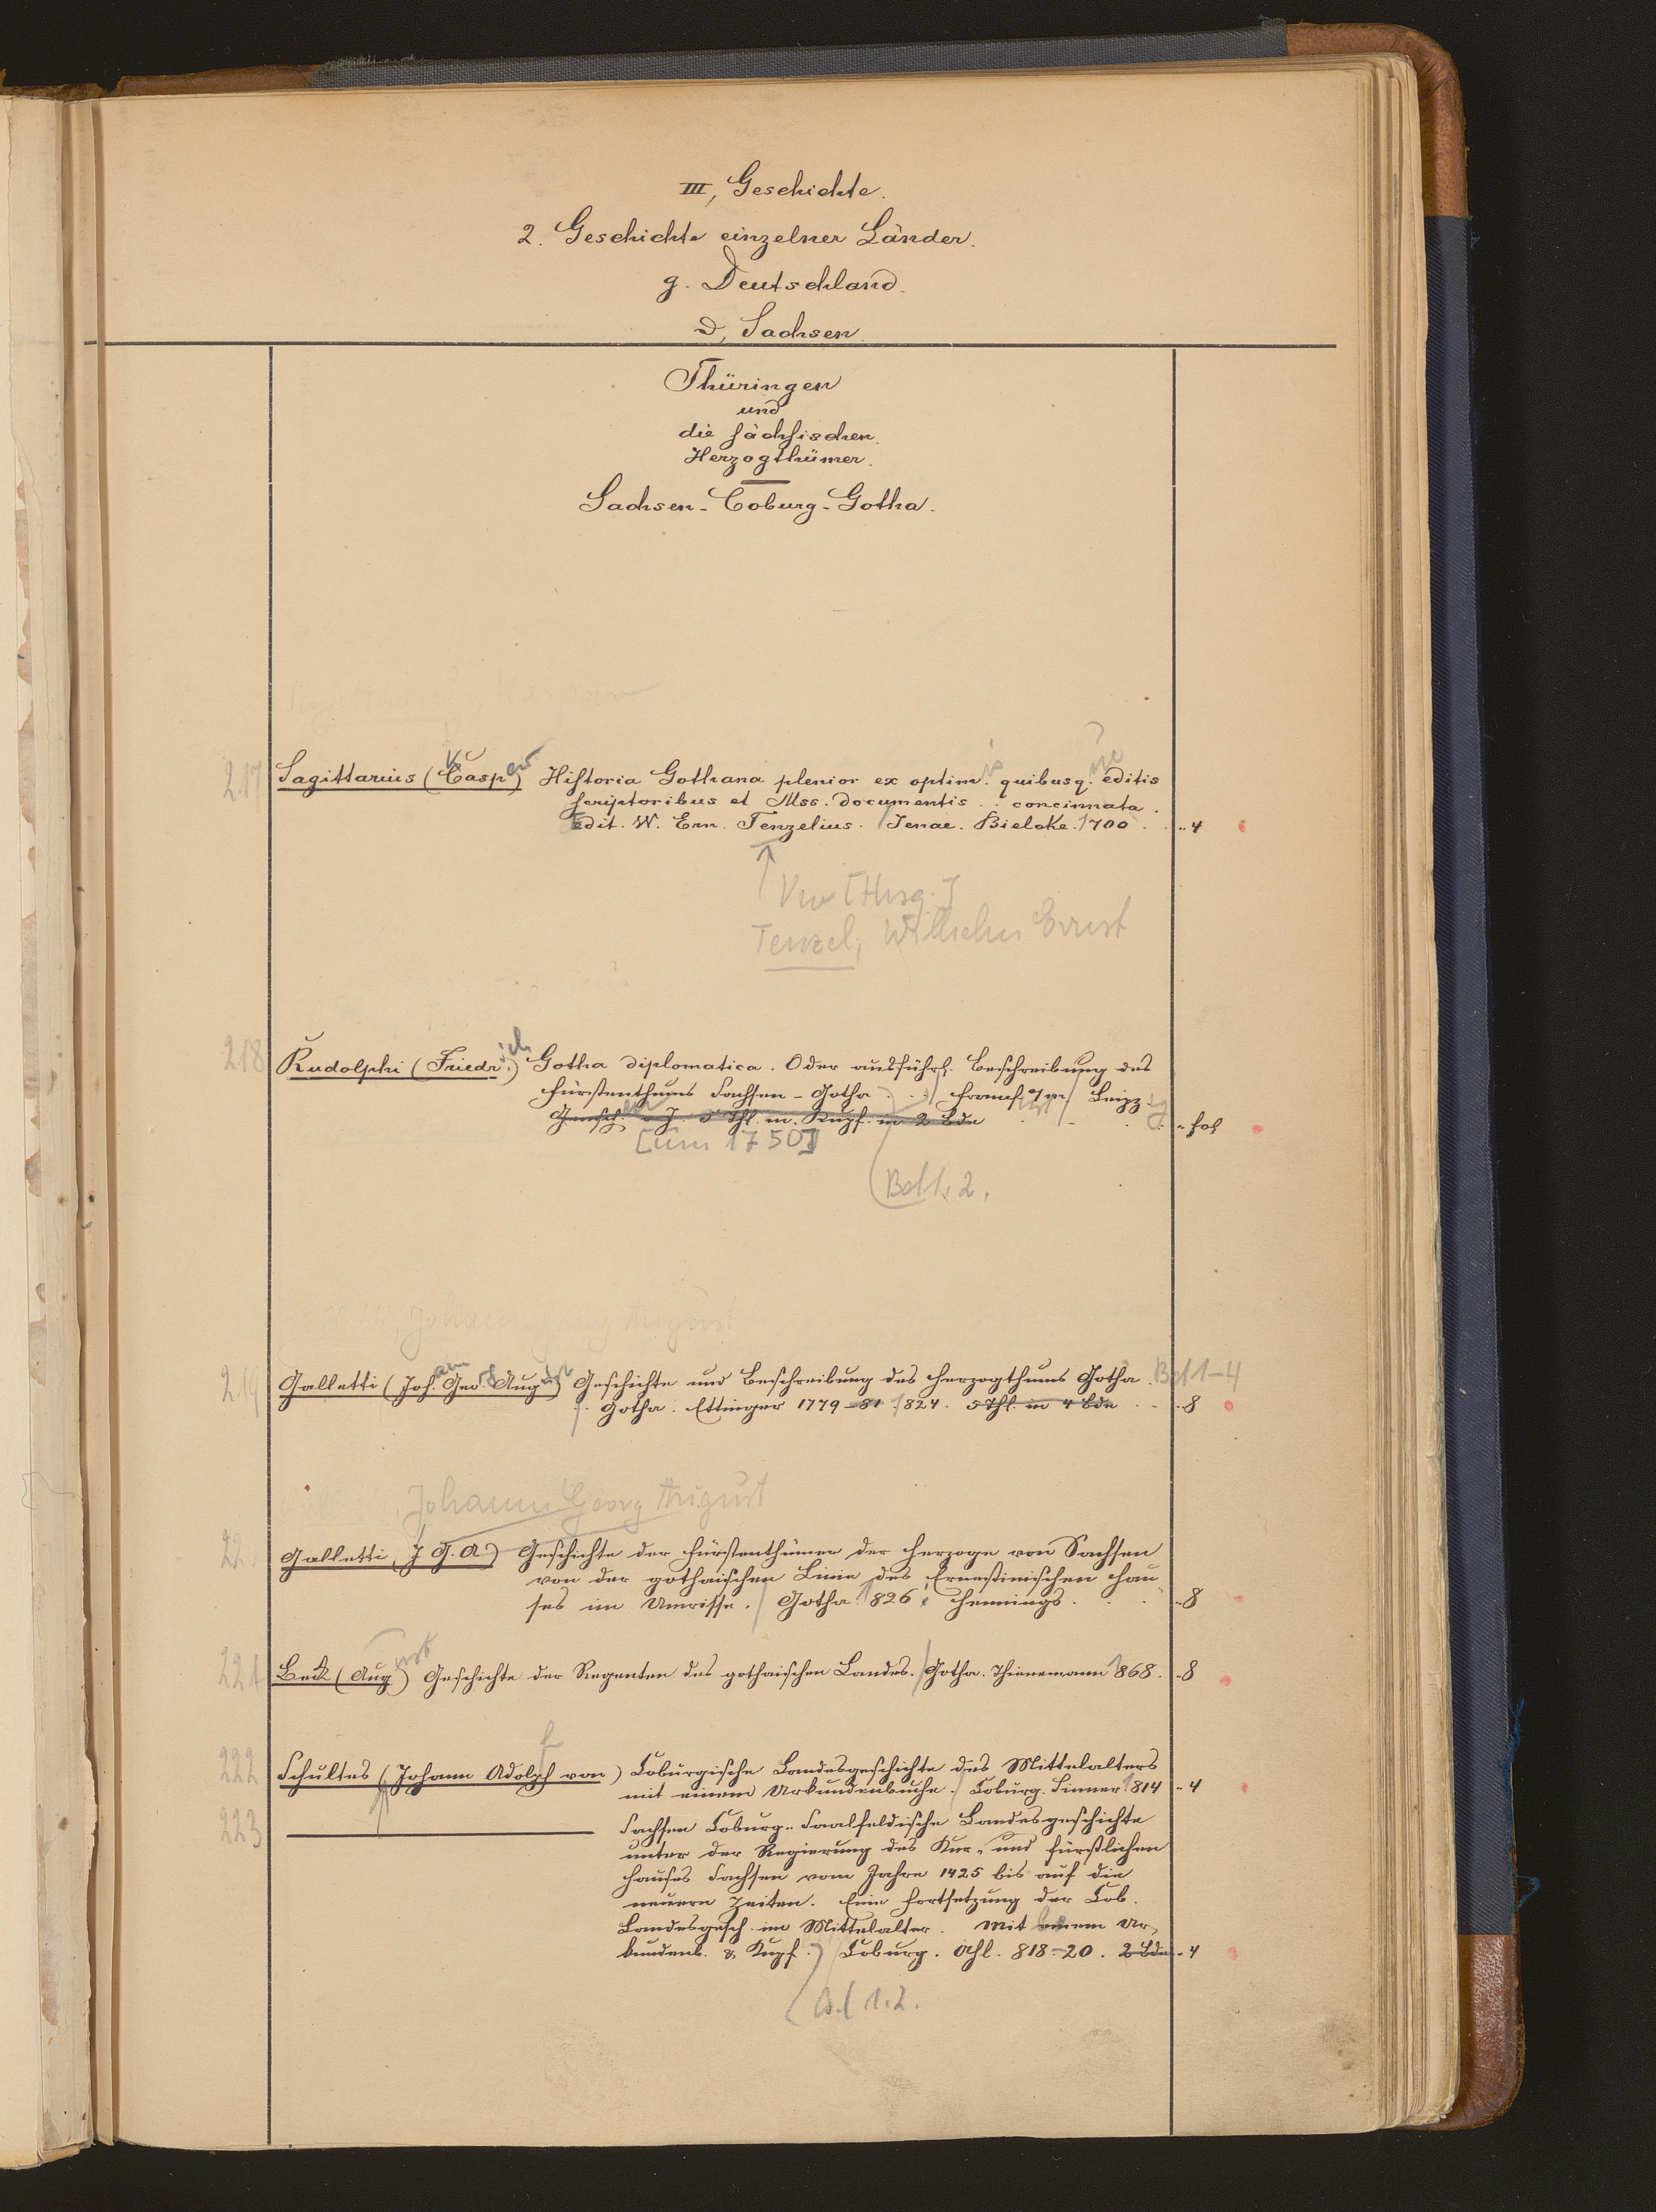 III, Geschichte.
2. Geschichte einzelner Länder.
g. Deutschland.
D, Sachsen.
Thüringen
und
die sächsischen
Herzogthümer.
Sachsen-Coburg-Gotha.
217 Sagittarius (Casp) Historia Gothana plenior ex optim. quibusq. editis
scriptoribus et Mss. documentis . . concinnata.
Edit. W. Ern. Tenzelius. Jenae. Bielcke. 1700 . . 4
[Hrsg.]
Tenzel, Wilhelm Ernst
218 Rudolphi (Friedrich) Gotha diplomatica. Oder ausführl. Beschreibung des
Fürstenthums Sachsen-Gotha . . Leipzig
5 Thl. m. Kupf. in 2 Bde . . fol
[um 1750]
Bd 1. 2.
Johann Georg August
219 Galletti (Joh. Geo. August) Geschichte und Beschreibung des Herzogthums Gotha. Bd 1-4
Gotha. Ettinger 1779-81. 824. 5 Thl. in 4 Bde . . 8
Johann Georg August
Galletti, J. G. A.) Geschichte der Fürstenthümer der Herzoge von Sachsen
von der gothaischen Linie des Ernestinischen Hau-
ses im Umrisse. Gotha. 1826. Hennings . . 8
221 Beck (August) Geschichte der Regenten des gothaischen Landes. Gotha. Thienemann 1868. 8
222 Schultes (Johann Adolph von) Coburgische Landesgeschichte des Mittelalters
mit einem Urkundenbuche. Coburg. Sinner 1814 . 4
223 Sachsen Coburg-Saalfeldische Landesgeschichte
unter der Regierung des Kur- und Fürstlichen
Hauses Sachsen vom Jahre 1425 bis auf die
neuern Zeiten. Eine Fortsetzung der Cob.
Landesgesch. im Mittelalter. Mit einem Ur-
kundenb. & Kupf. Coburg. Ahl. 818-20. 2 Bde . 4
Bd 1. 2.